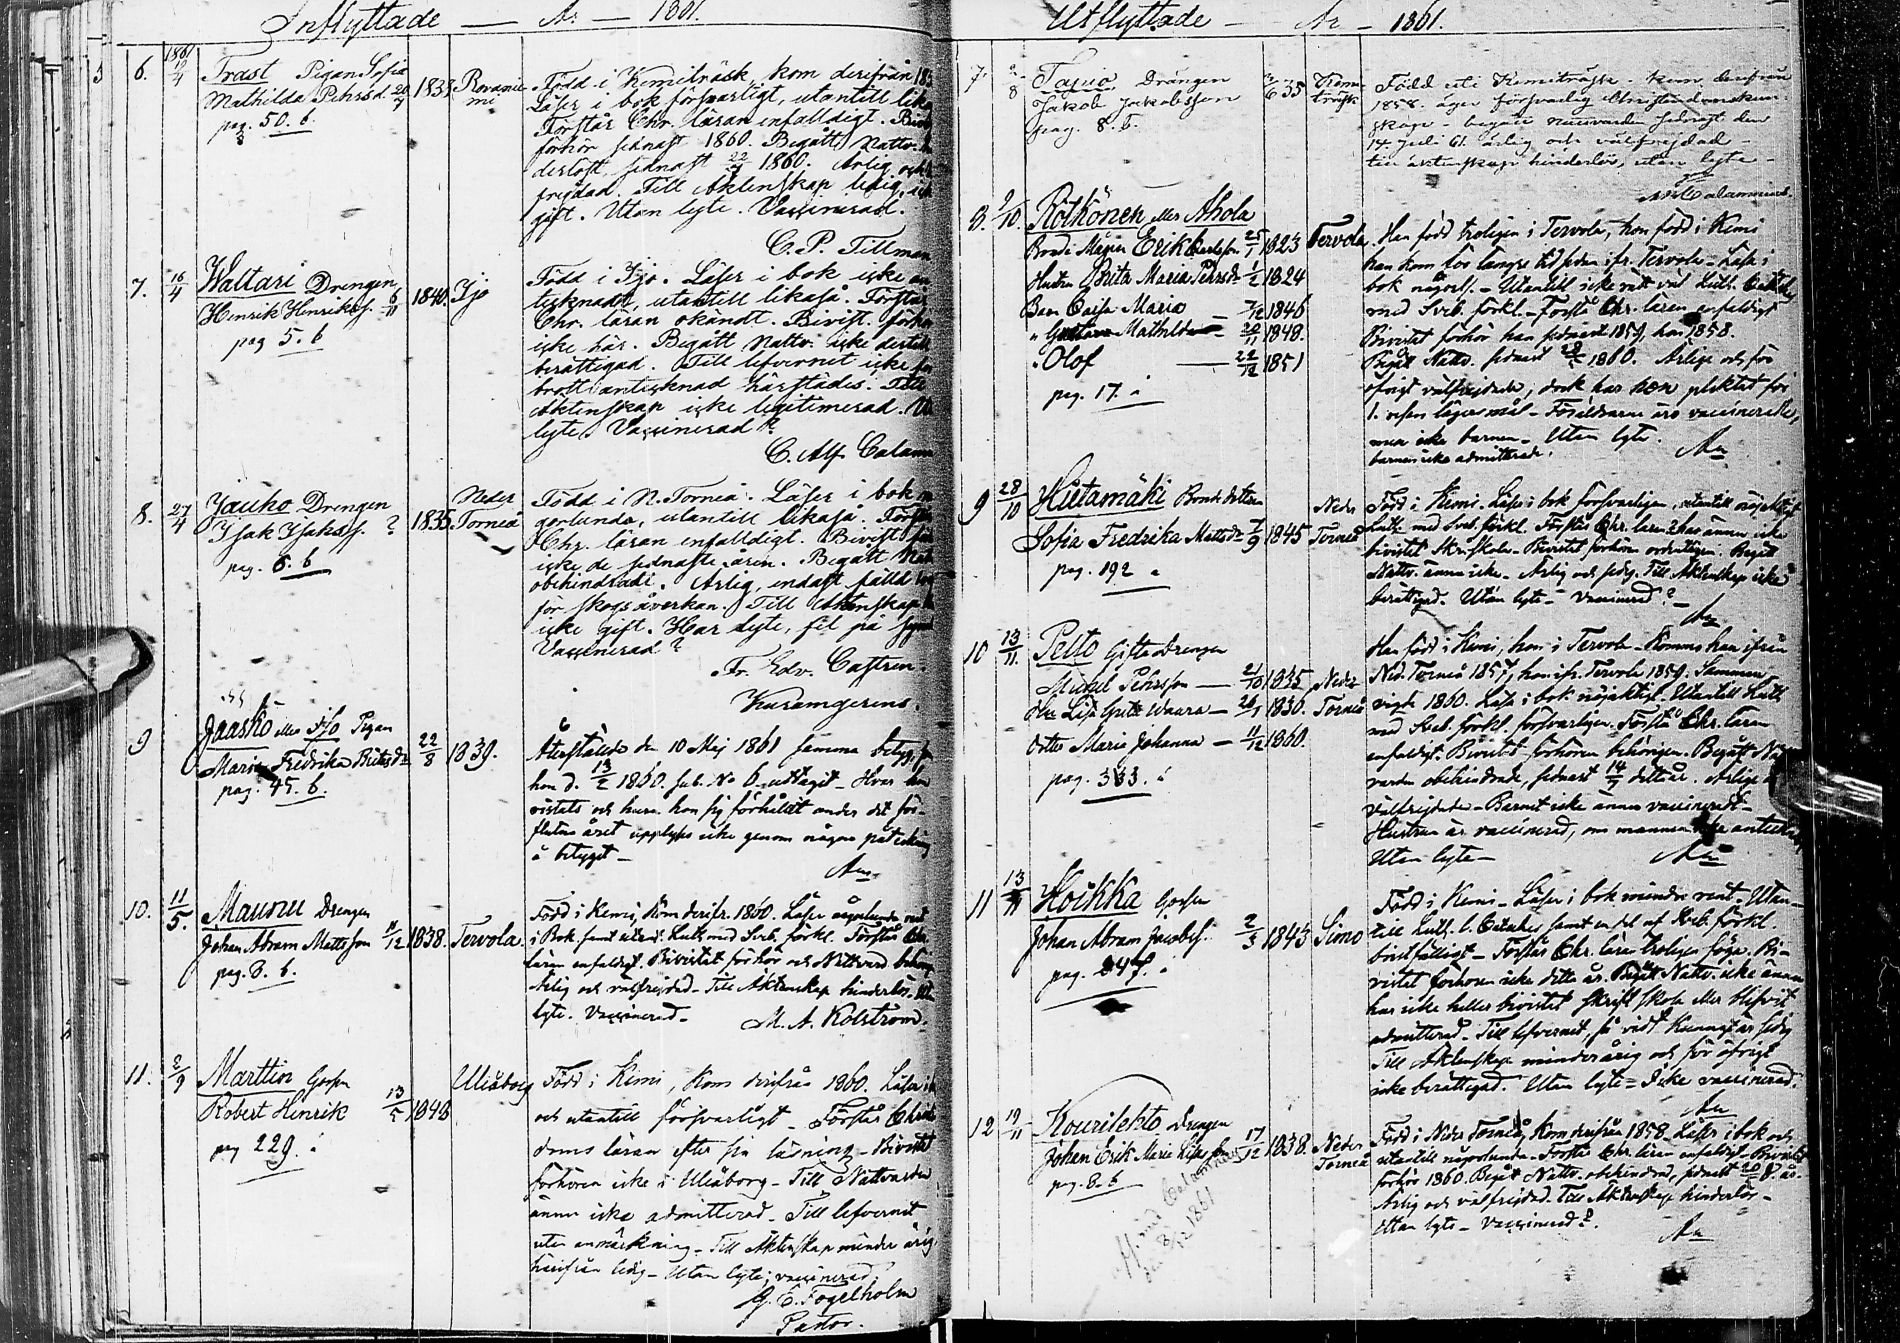 Inflyttade — År — 1861.
6. 1861 19/4 Trast Pigan Sofia
Mathilda Pehrsd. 20/7 1838 Rovaniemi
pag. 50. b.
Född i Kemiträsk, kom derifrån
Läser i bok försvarligt, utantill lika
Förstår Chr. läran enfalldigt.
förhör sednast 1860. Begått Nattv.
derstöst, sednast 22/4 1860. Ärlig och
frejdad. Till Äktenskap ledig,
gift. Utan lyte. Vaccinerad.
C. P. Tillman
7. 16/4 Waltari Drengen
Henrik Henrikss. 6/11 1840. Ijo
pag 5. b
Född i Ijo. Läser i bok icke an
tecknadt, utantill likaså. Förstår
Chr. läran okändt. Bivist. förhör
icke här. Begått Nattv. icke dertill
berättigad. Till lefvernet icke för
brott antecknad härstädes. Till
Äktenskap icke legitimerad.
lyte. Vaccinerad?
C. Alf. Calam
8. 27/4 Jauho Drengen
Isak Isakss. ? 1835. Neder Torneå
pag. 6. b
Född i N. Torneå. Läser i bok
gorlunda, utantill likaså. Förstår
Chr. läran enfalldigt. Bivist
icke de sednaste åren. Begått Nat
obehindradt. Ärlig, endast fälld
för skogsåverkan. Till Äktenskap
icke gift. Har lyte, fel på
Vaccinerad?
Fr. Edv. Castren.
9 Jaasko eller Ilo Pigan
Maria Fredrika Britasdr 22/8 1839.
pag. 45. b.
Återstälde den 10 Maj 1861 samma betyg,
hon d. 13/2 1860. sub. No 6 uttagit — Hvar hon
vistats och huru hon sig förhållit under det för-
flutna året upplyses icke genom någon påteckning
å betyget —
Am
10. 11/5. Maunu Drengen
Johan Abram Mattsson 11/12 1838. Tervola.
pag. 8. b.
Född i Kemi, Kom derifr. 1860. Läser någorlunda
i Bok samt utant. Luth. med Sveb. förkl. Förstår Chr.
läran enfaldigt. Bivistat förhör och Nattvard
Ärlig och välfrejdad — Till Äktenskap hinderlös.
lyte. Vaccinerad —
M. A. Rolstrom.
11. 2/9 Marttin Gossen
Robert Henrik 13/5 1848 Uleåborg
pag 229.
Född i Kemi, Kom derifrån 1860. Läser i
och utantill försvarligt — Förstår Christ
doms läran efter sin läsning — Bivistat
förhören icke i Uleåborg — Till Nattvarden
ännu icke admitterad — Till lefvernet
utan anmärkning — Till Äktenskap minder årig
härifrån ledig — Utan lyte; vaccinerad
G. E. Fogelholm
Pastor.
Utflyttade — År — 1861.
7. 2/8 Tapio Drängen
Jakob Jakobsson 35 Kemiträsk
pag. 8. b.
Född uti Kemiträsk. kom derifrån
1858. äger försvarlig Christendomskun-
skap — begått nattvarden sednast den
14 Juli 61. ärlig och välfrejdad —
till äktenskap hinderlös, utan lyte —
8. 9/10 Rötkönen eller Ahola
Erik Carlsson 25/1 1823 Tervola
Hustru Brita Maria Pehrsdr 1/2 1824
Barn Caisa Maria — 7/12 1846
" Gustava Mathilda — 20/11 1848.
" Olof — 22/12 1851
pag. 17.
Han född troligen i Tervola, hon född i Kemi
han kom för längre tid sedan ifr. Tervola — Läse i
bok någorl. — Utantill icke rätt väl Luth. Cateches
med Sveb. förkl. — Förstå Chr. läran enfaldigt
Bivistat förhör han sednast 1859, hon 1858.
Begått Nattv. sednast 1860. Ärlige och för
öfrigt välfrejdade, dock har hon pliktat för
1. resan lägersmål — Föräldrarne äro vaccinerade,
men icke barnen — Utan lyte.
barnen icke admitterade.
Am
9 28/10 Hietamäki Bondedottren
Sofia Fredrika Mattsdr 7/9 1845 Neder Torneå
pag. 192
Född i Kemi. Läser i bok försvarligen, utantill nöjaktigt
Luth. med Sveb. förkl. Förstår Chr. läran har ännu icke
bivistat Skriftskola. Bivistat förhören ordentligen. Begått
Nattv. ännu icke. Ärlig och sedig. Till Äktenskap icke
berättigad. Utan lyte — Vaccinerad? —
Am
10 13/11. Pelto Gifta Drengen
Michel Pehrsson — 21/10 1835 Neder
Hu Lisa Greta Waara — 26/1 1830. Torneå
dotter Maria Johanna — 11/12 1860.
pag. 333.
Han född i Kemi, hon i Tervola — Komne han ifrån
Ned. Torneå 1857, hon ifr. Tervola 1859. Samman
vigde 1860. Läsa i bok nöjaktigt. Utantill Luth.
med Sveb. förkl. försvarligen. Förstå Chr. läran
enfaldigt. Bivistat förhören behörigen. Begått Natt
varden obehindrade, sednast 14/7 detta år. Ärlige
välfrejdade — Barnet icke ännu vaccineradt —
Hustrun är vaccinerad, om mannen icke anteckn.
Utan lyte —
Am
11 13/11 Hoikka Gossen
Johan Abram Jacobss. 2/3 1843 Simo
pag. 247.
Född i Kemi — Läser i bok mindre rent — Utan-
till Luth. l. Cateches samt en del af Sveb. förkl.
bristfälligt — Förstår Chr. läran troligen föga. Bi-
vistat förhören icke detta år. Begått Nattv. icke ännu
har icke heller bivistat skriftskola eller blifvit
admitterad. Till lefvernet så vidt kunnigt är sedig
Till Äktenskap minderårig och för öfrigt
icke berättigad. Utan lyte — Icke vaccinerad.
Am
12 19/11 Kourilehto Drengen
Johan Erik Maria Lisa son 17/12 1838. Neder Torneå
pag. 8. b
8/12 1861
Född i Neder Torneå, Kom derifrån 1858. Läser i bok och
utantill någorlunda — Förstår Chr. läran enfaldigt — Bivistat
förhör 1860. Begått Nattv. obehindrad, sednast 20/ d. år.
Ärlig och välfrejdad. Till Äktenskap hinderlös —
Utan lyte — Vaccinerad?.
Am